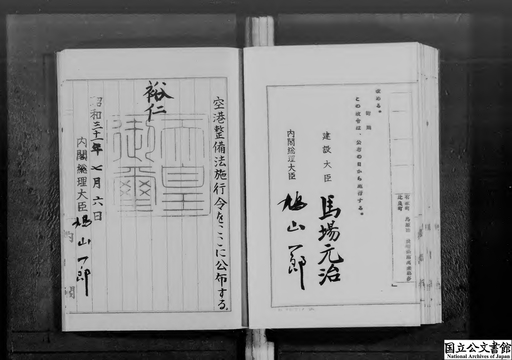 定める。
附則
この政令は、公布の日から施行する。
建設大臣 馬場元治
内閣総理大臣 鳩山一郎
空港整備法施行令をここに公布する。
裕仁
天皇御璽
昭和三十一年七月六日
内閣総理大臣 鳩山一郎
国立公文書館
National Archives of Japan